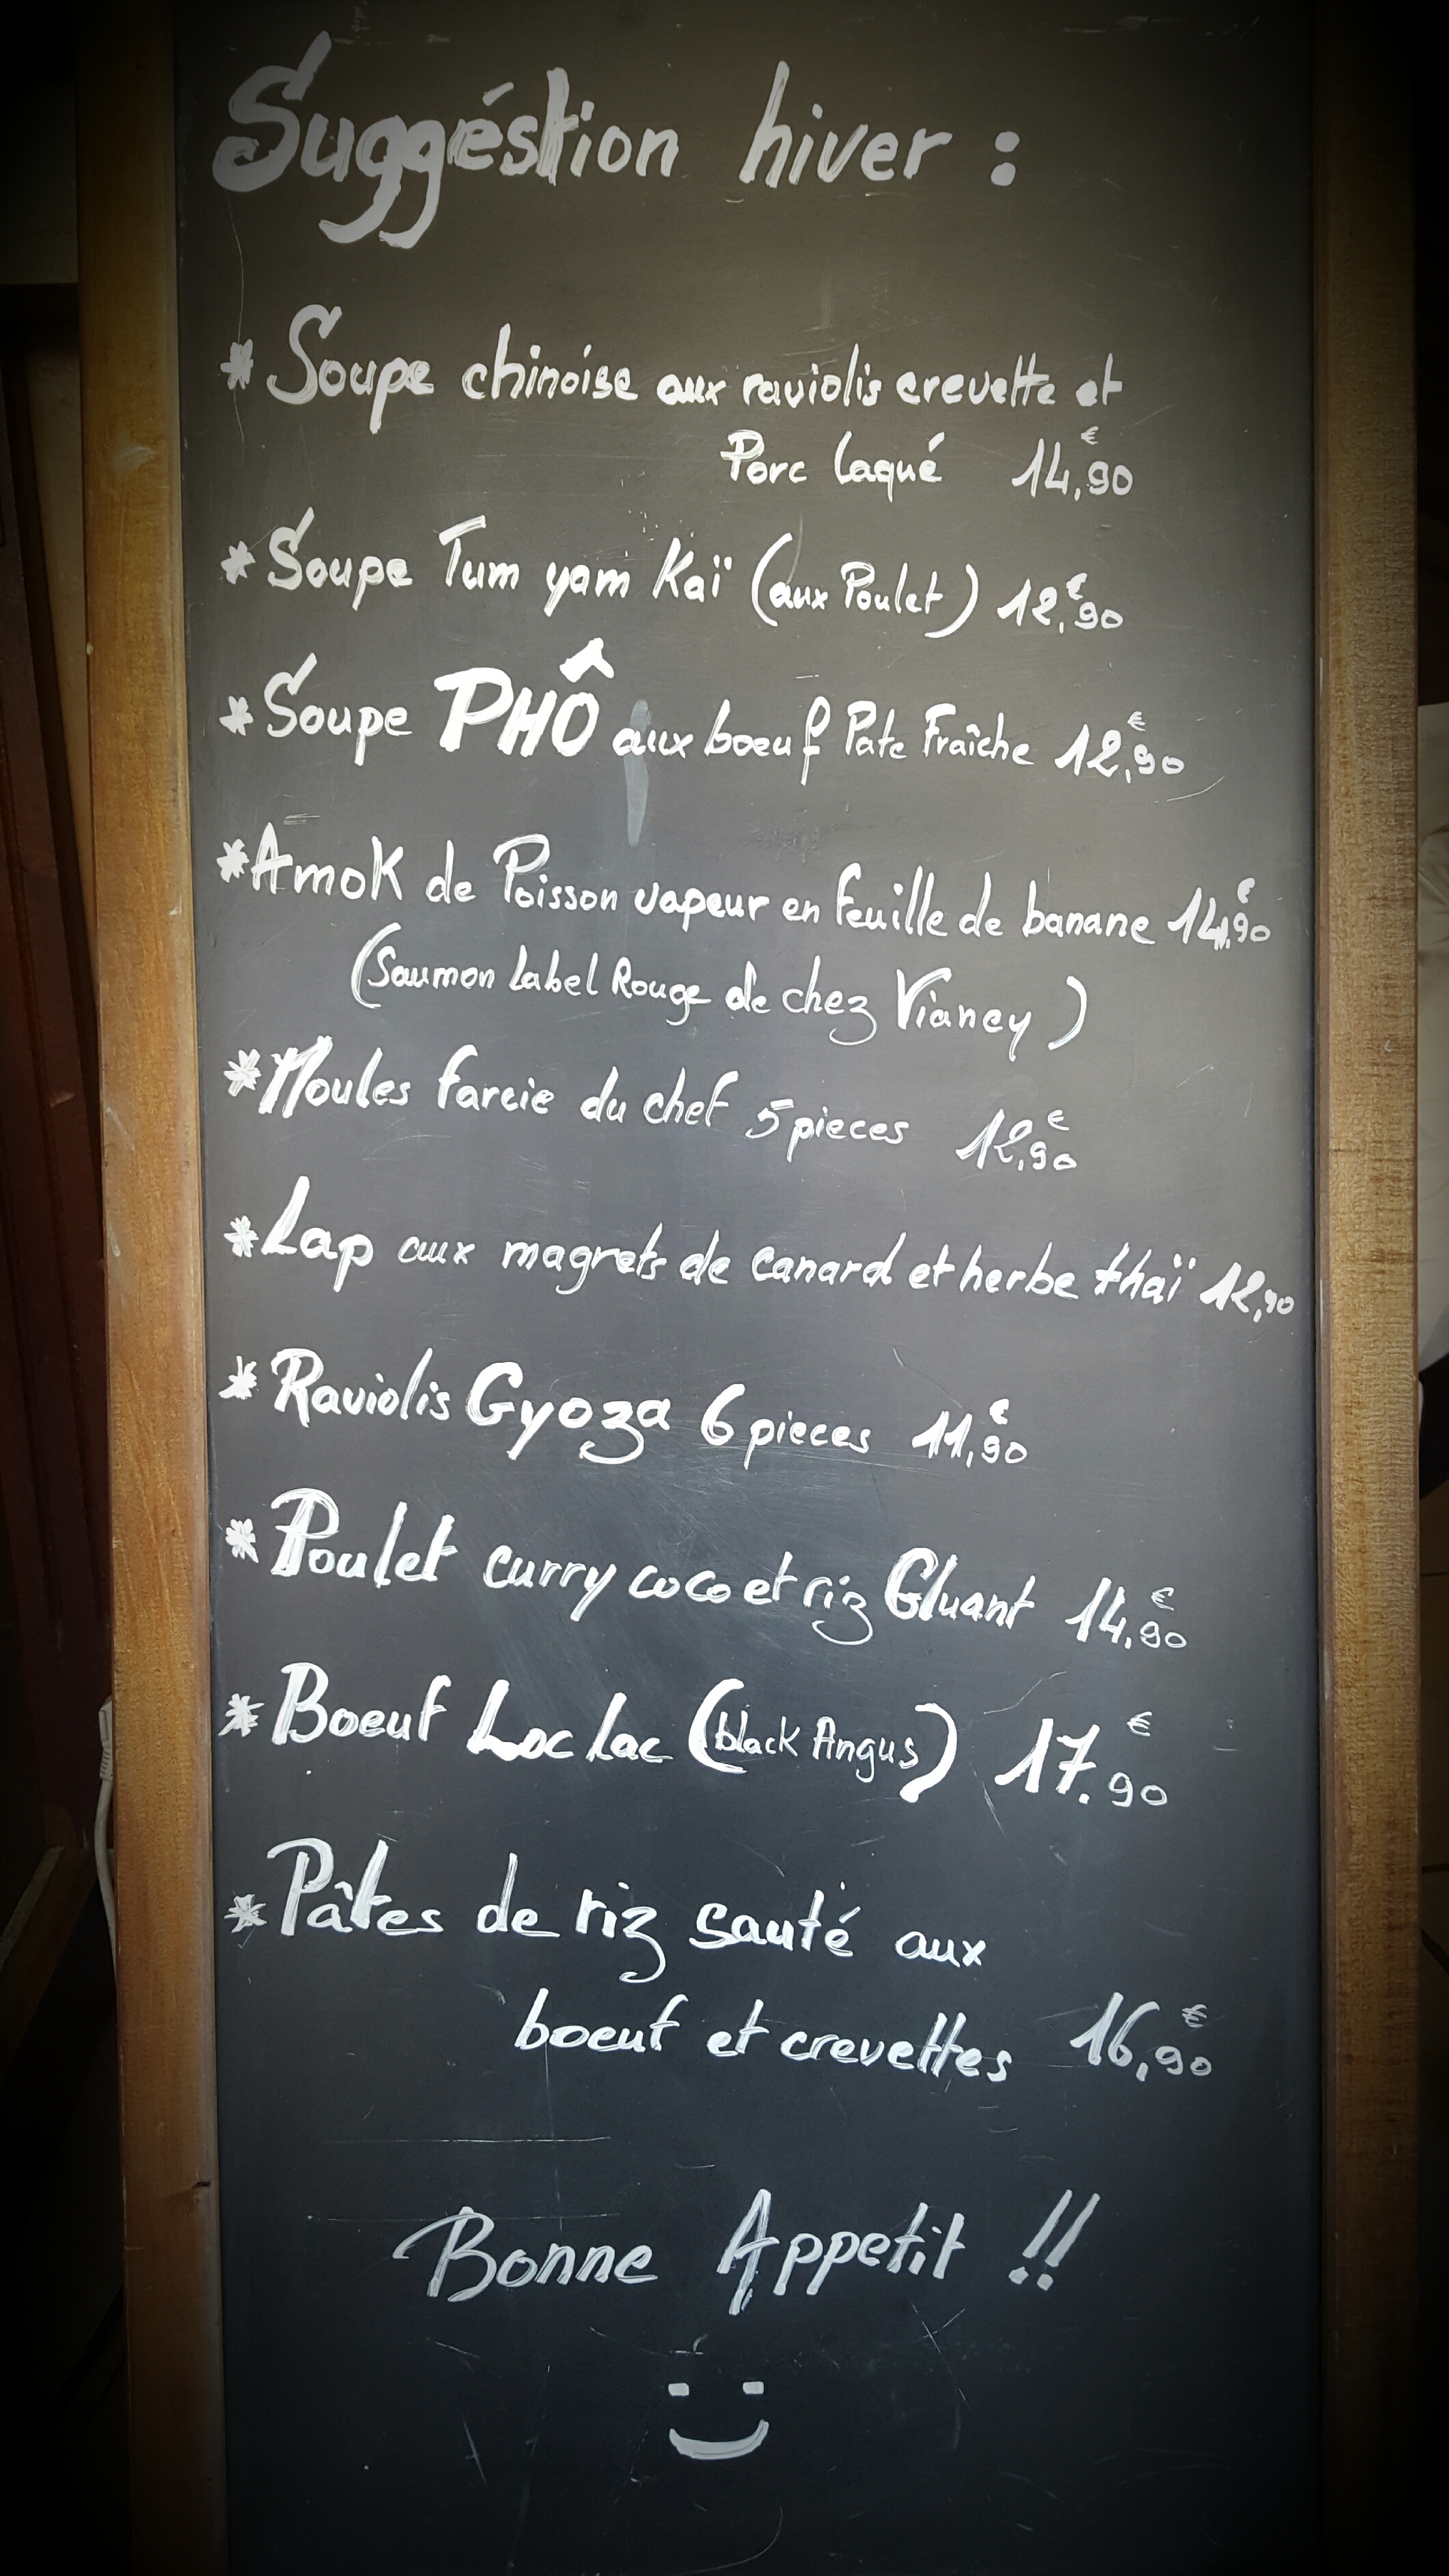 Suggéstion hiver :
* Soupe chinoise aux raviolis crevette et
Porc laqué 14,90 €
* Soupe Tum yam Kaï (aux Poulet) 12,90 €
* Soupe PHÔ aux boeuf Pate Fraîche 12,90 €
* Amok de Poisson vapeur en feuille de banane 14,90 €
(Saumon Label Rouge de chez Vianey)
* Moules farcie du chef 5 pieces 12,90 €
* Lap aux magrets de canard et herbe thaï 12,90
* Raviolis Gyoza 6 pieces 11,90 €
* Poulet curry coco et riz Gluant 14,90 €
* Boeuf Loc Lac (black Angus) 17.90 €
* Pâtes de riz sauté aux
boeuf et crevettes 16,90 €
Bonne Appetit !!